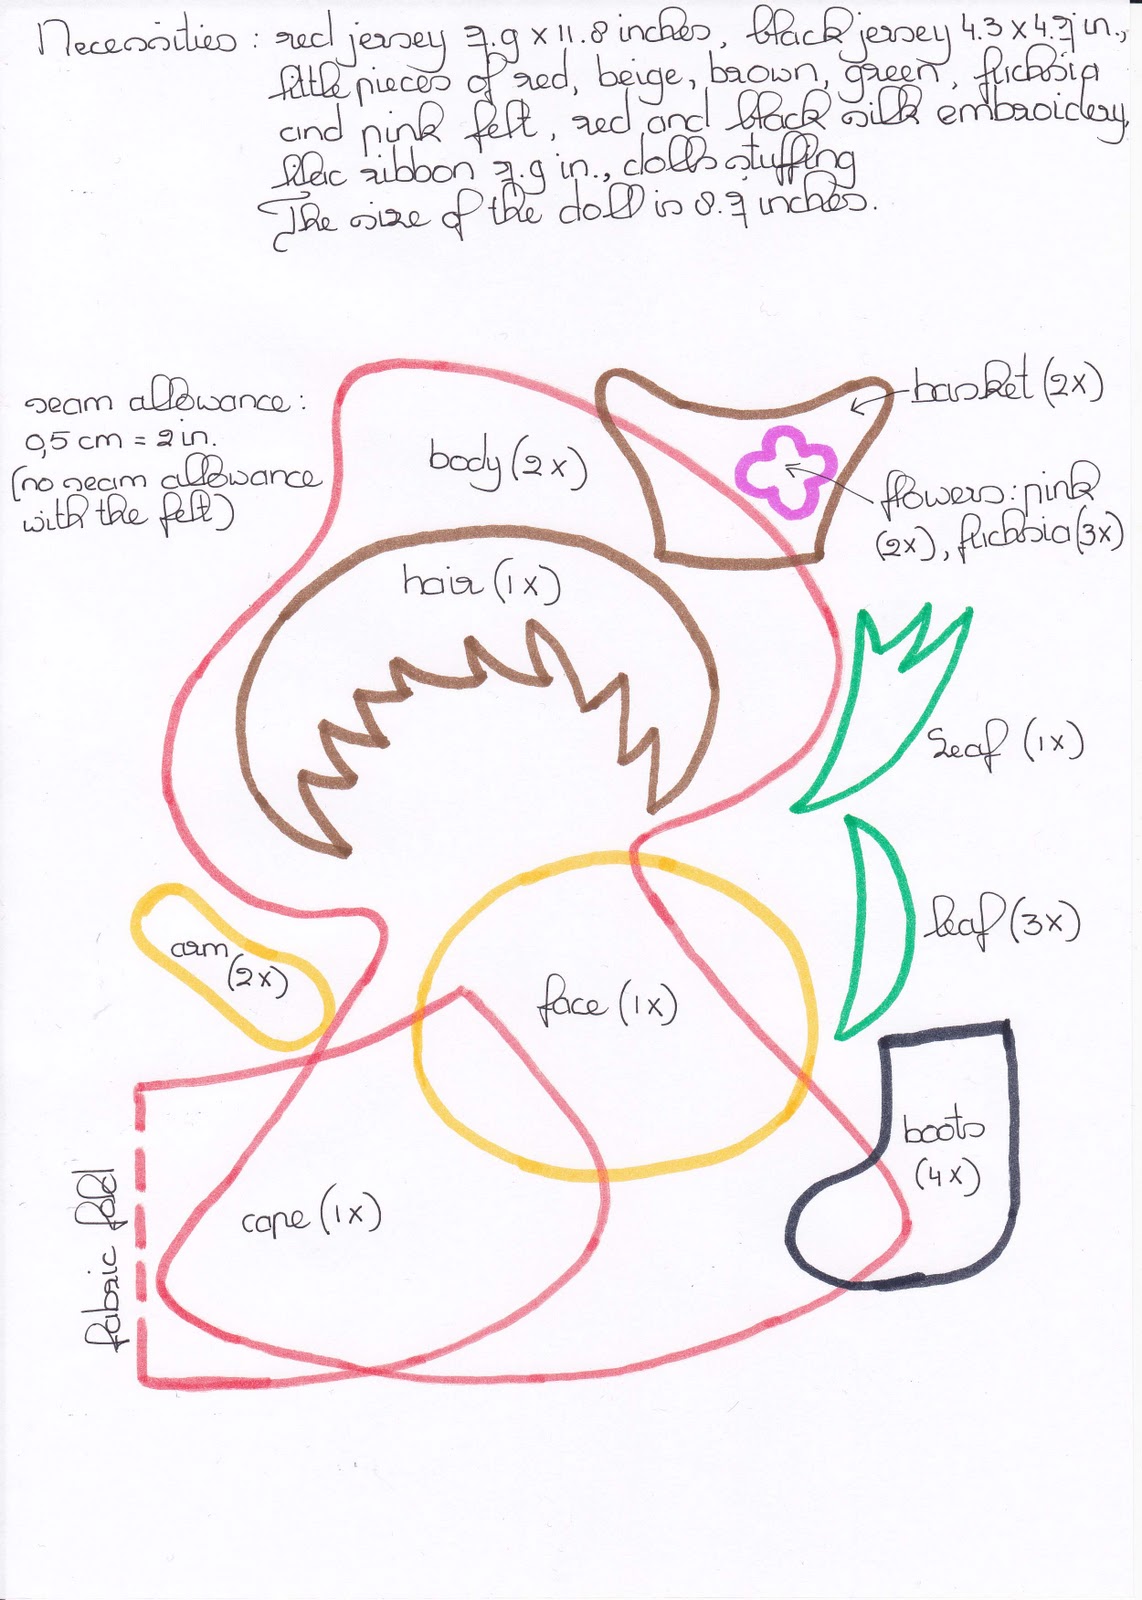 Necessities : red jersey 7.9 x 11.8 inches, black jersey 4.3 x 4.7 in.,
little pieces of red, beige, brown, green, fuchsia
and pink felt, red and black silk embroidery,
lilac ribbon 7.9 in., dolls stuffing
The size of the doll is 8.7 inches.
seam allowance:
0,5 cm = 2 in.
(no seam allowance
with the felt)
basket (2x)
body (2x)
flowers: pink
(2x), fuchsia (3x)
hair (1x)
Leaf (1x)
leaf (3x)
arm
(2x)
face (1x)
boots
(4x)
cape (1x)
fabric fold